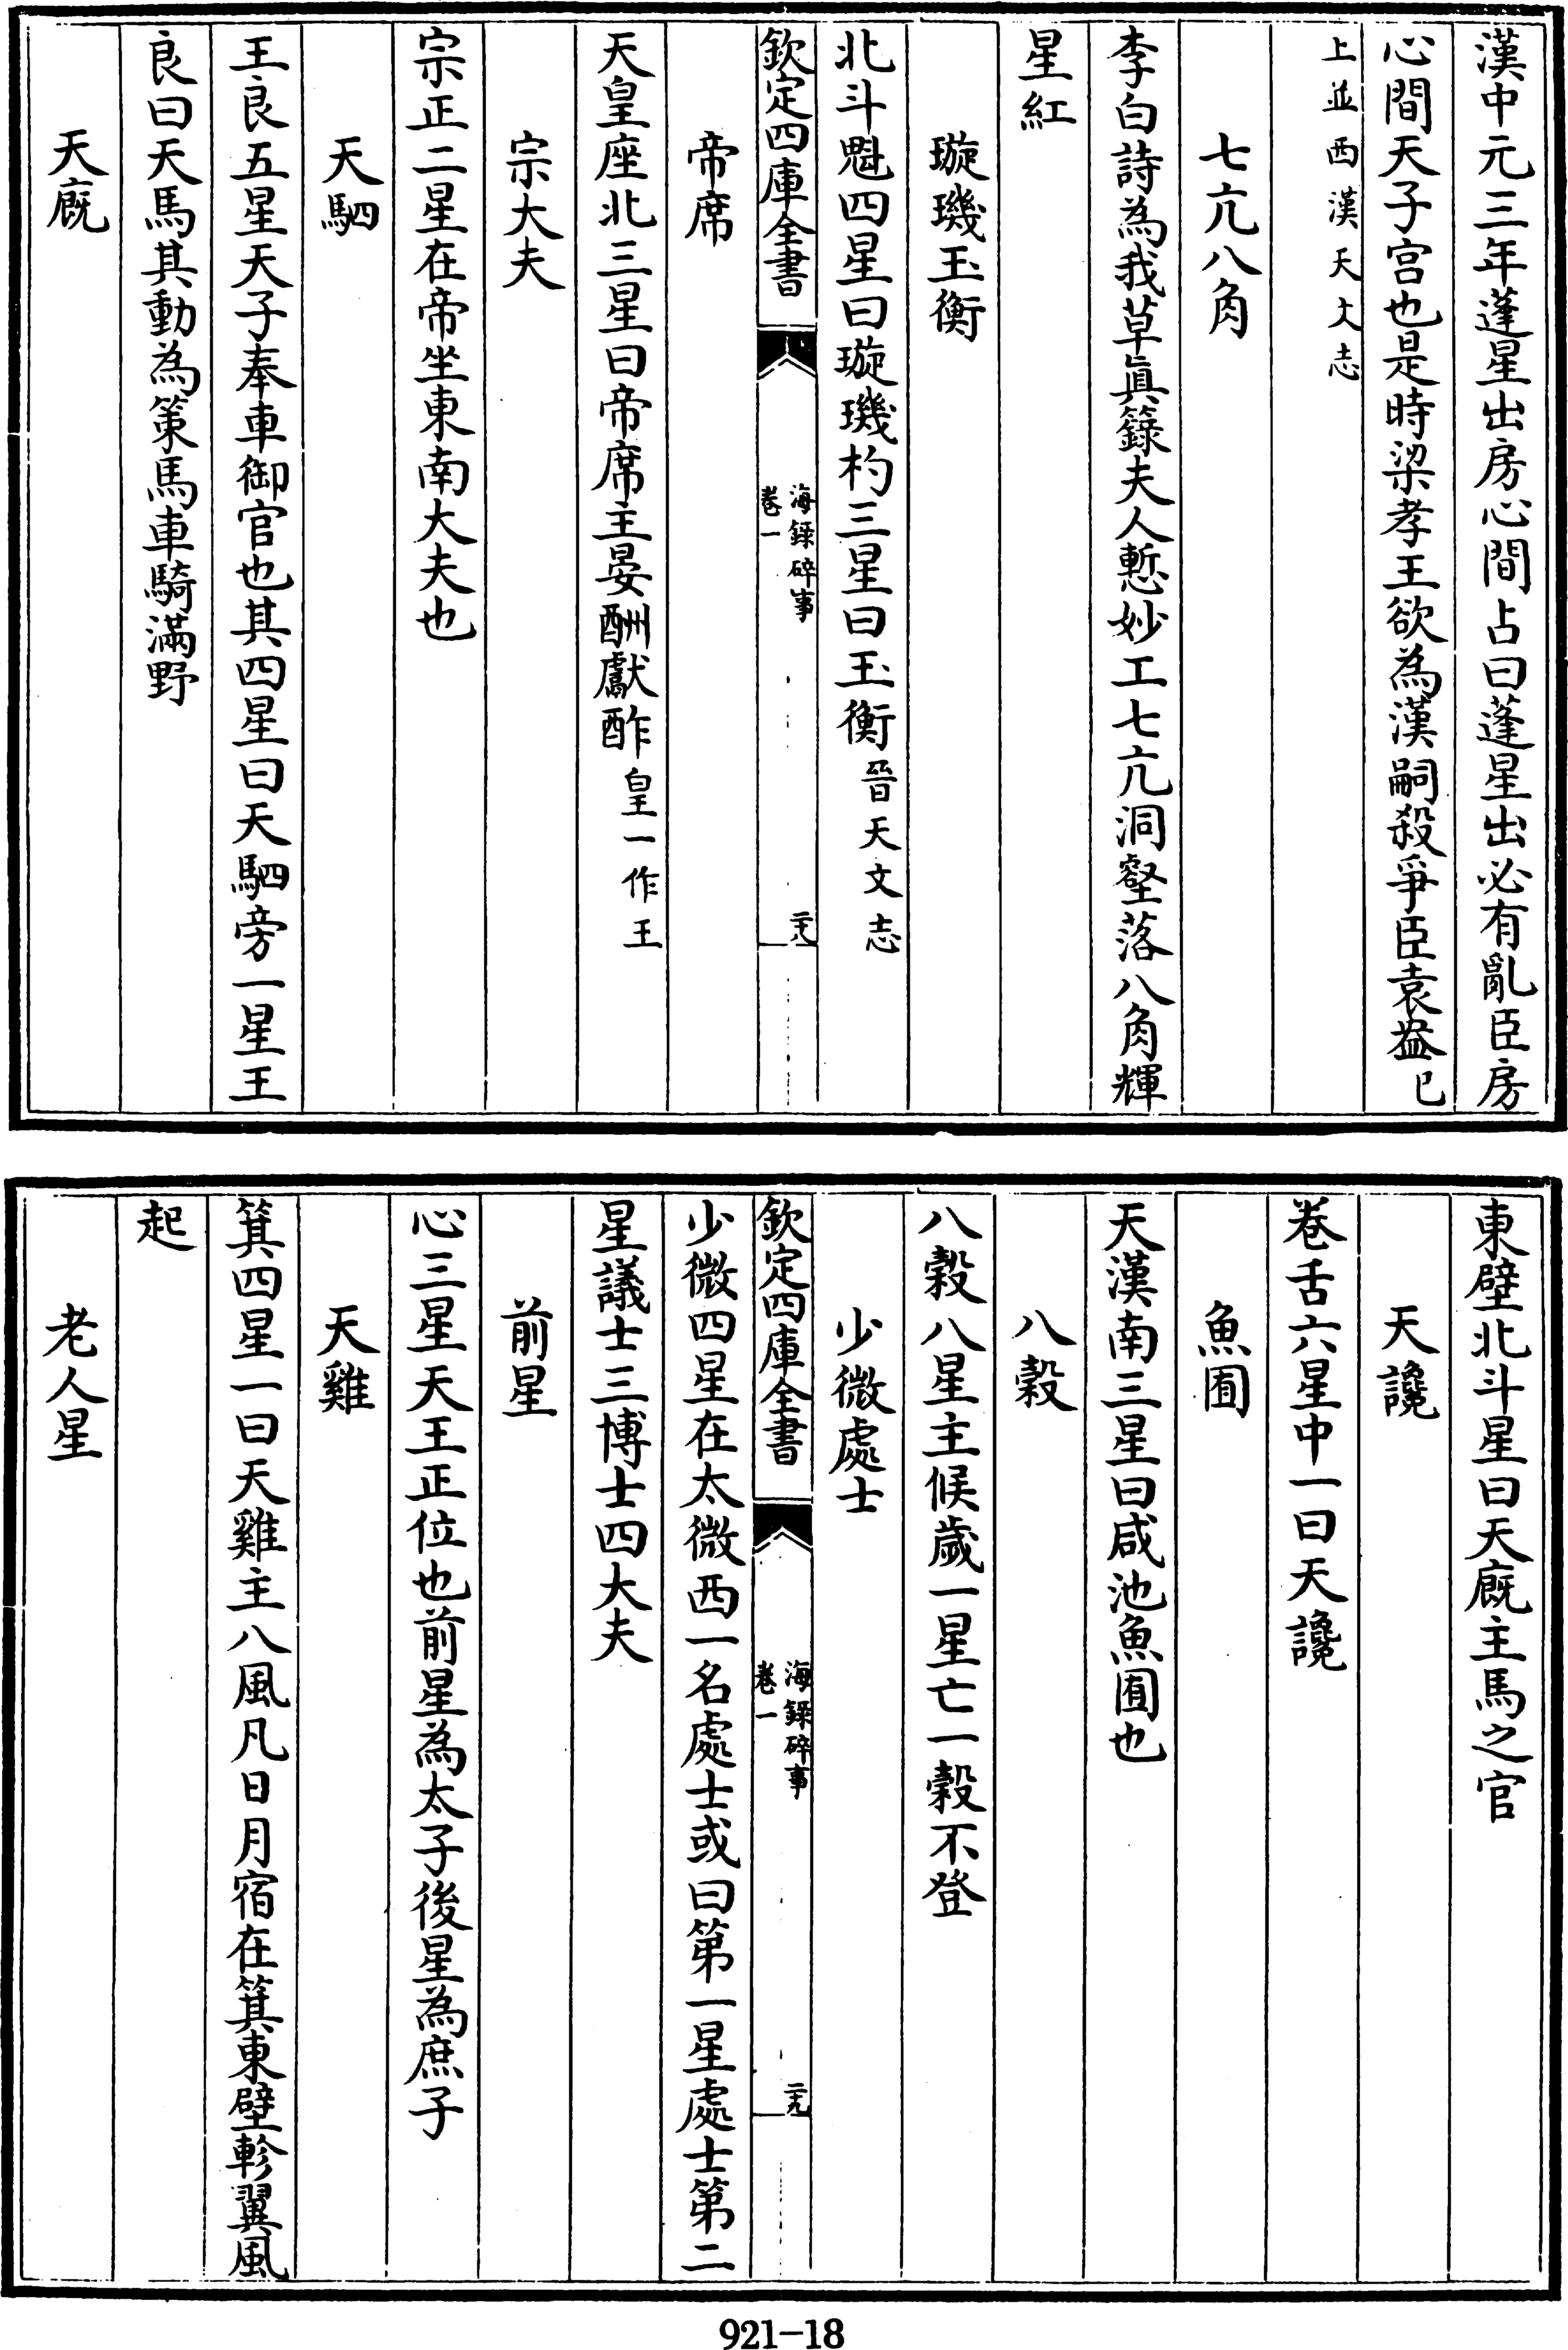 漢中元三年蓬星出房心間占曰蓬星出必有亂臣房
心間天子宮也是時梁孝王欲為漢嗣殺爭臣袁盎已
上並西漢天文志
七亢八角
李白詩為我草真籙夫人慙妙工七亢洞壑落八角輝
星紅
璇璣玉衡
北斗魁四星曰璇璣杓三星曰玉衡晉天文志
欽定四庫全書
海錄碎事
卷一
二十八
帝席
天皇座北三星曰帝席主宴酬獻酢皇一作王
宗大夫
宗正二星在帝坐東南大夫也
天駟
王良五星天子奉車御官也其四星曰天駟旁一星王
良曰天馬其動為策馬車騎滿野
天廐
東壁北斗星曰天廐主馬之官
天讒
卷舌六星中一曰天讒
魚囿
天漢南三星曰咸池魚囿也
八穀
八穀八星主候歲一星亡一穀不登
少微處士
欽定四庫全書
海錄碎事
卷一
二十九
少微四星在太微西一名處士或曰第一星處士第二
星議士三博士四大夫
前星
心三星天王正位也前星為太子後星為庶子
天雞
箕四星一曰天雞主八風凡日月宿在箕東壁軫翼風
起
老人星
921-18